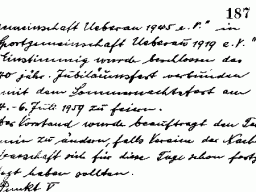 187
gemeinschaft Ueberau 1945 e.V." in
Sportgemeinschaft Ueberau 1919 e.V."
Einstimmig wurde beschlossen das
40 jähr. Jubiläumsfest verbunden
mit dem Sommernachtsfest am
4.-6. Juli 1959 zu feiern.
Der Vorstand wurde beauftragt den Ter
min zu ändern, falls Vereine der Nach
barschaft sich für diese Tage schon fest
legt haben sollten.
Punkt V